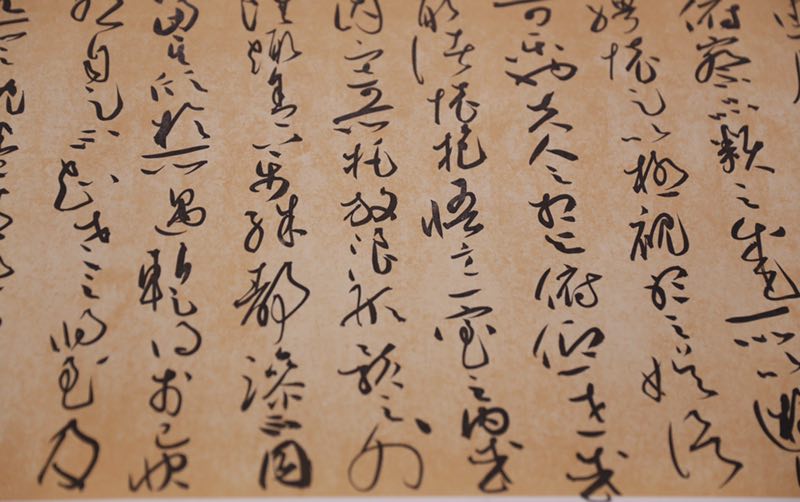 俯察品類之盛所以遊
騁懷足以極視聽之娛信
可樂也夫人之相與俯仰一世或
取諸懷抱悟言一室之內或
因寄所托放浪形骸之外
雖趣舍萬殊靜躁不同
當其欣於所遇暫得於己快
然自足不知老之將至及